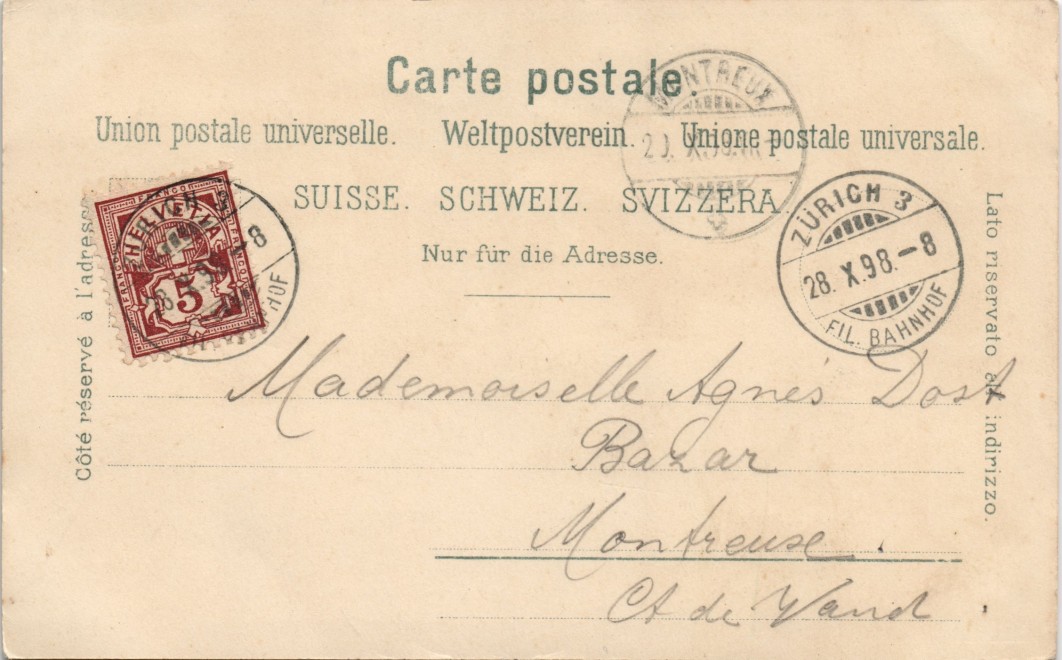 Carte postale.
Union postale universelle. Weltpostverein. Unione postale universale.
SUISSE. SCHWEIZ. SVIZZERA.
Nur für die Adresse.
Côté réservé à l'adresse
Lato riservato all' indirizzo.
MONTREUX
ZÜRICH 3
28. X. 98. – 8
FIL. BAHNHOF
FRANCO
HELVETIA
5
28. X. 98 – 8
HOF
Mademoiselle Agnès Dost
Bazar
Montreuse.
Ct de Vaud